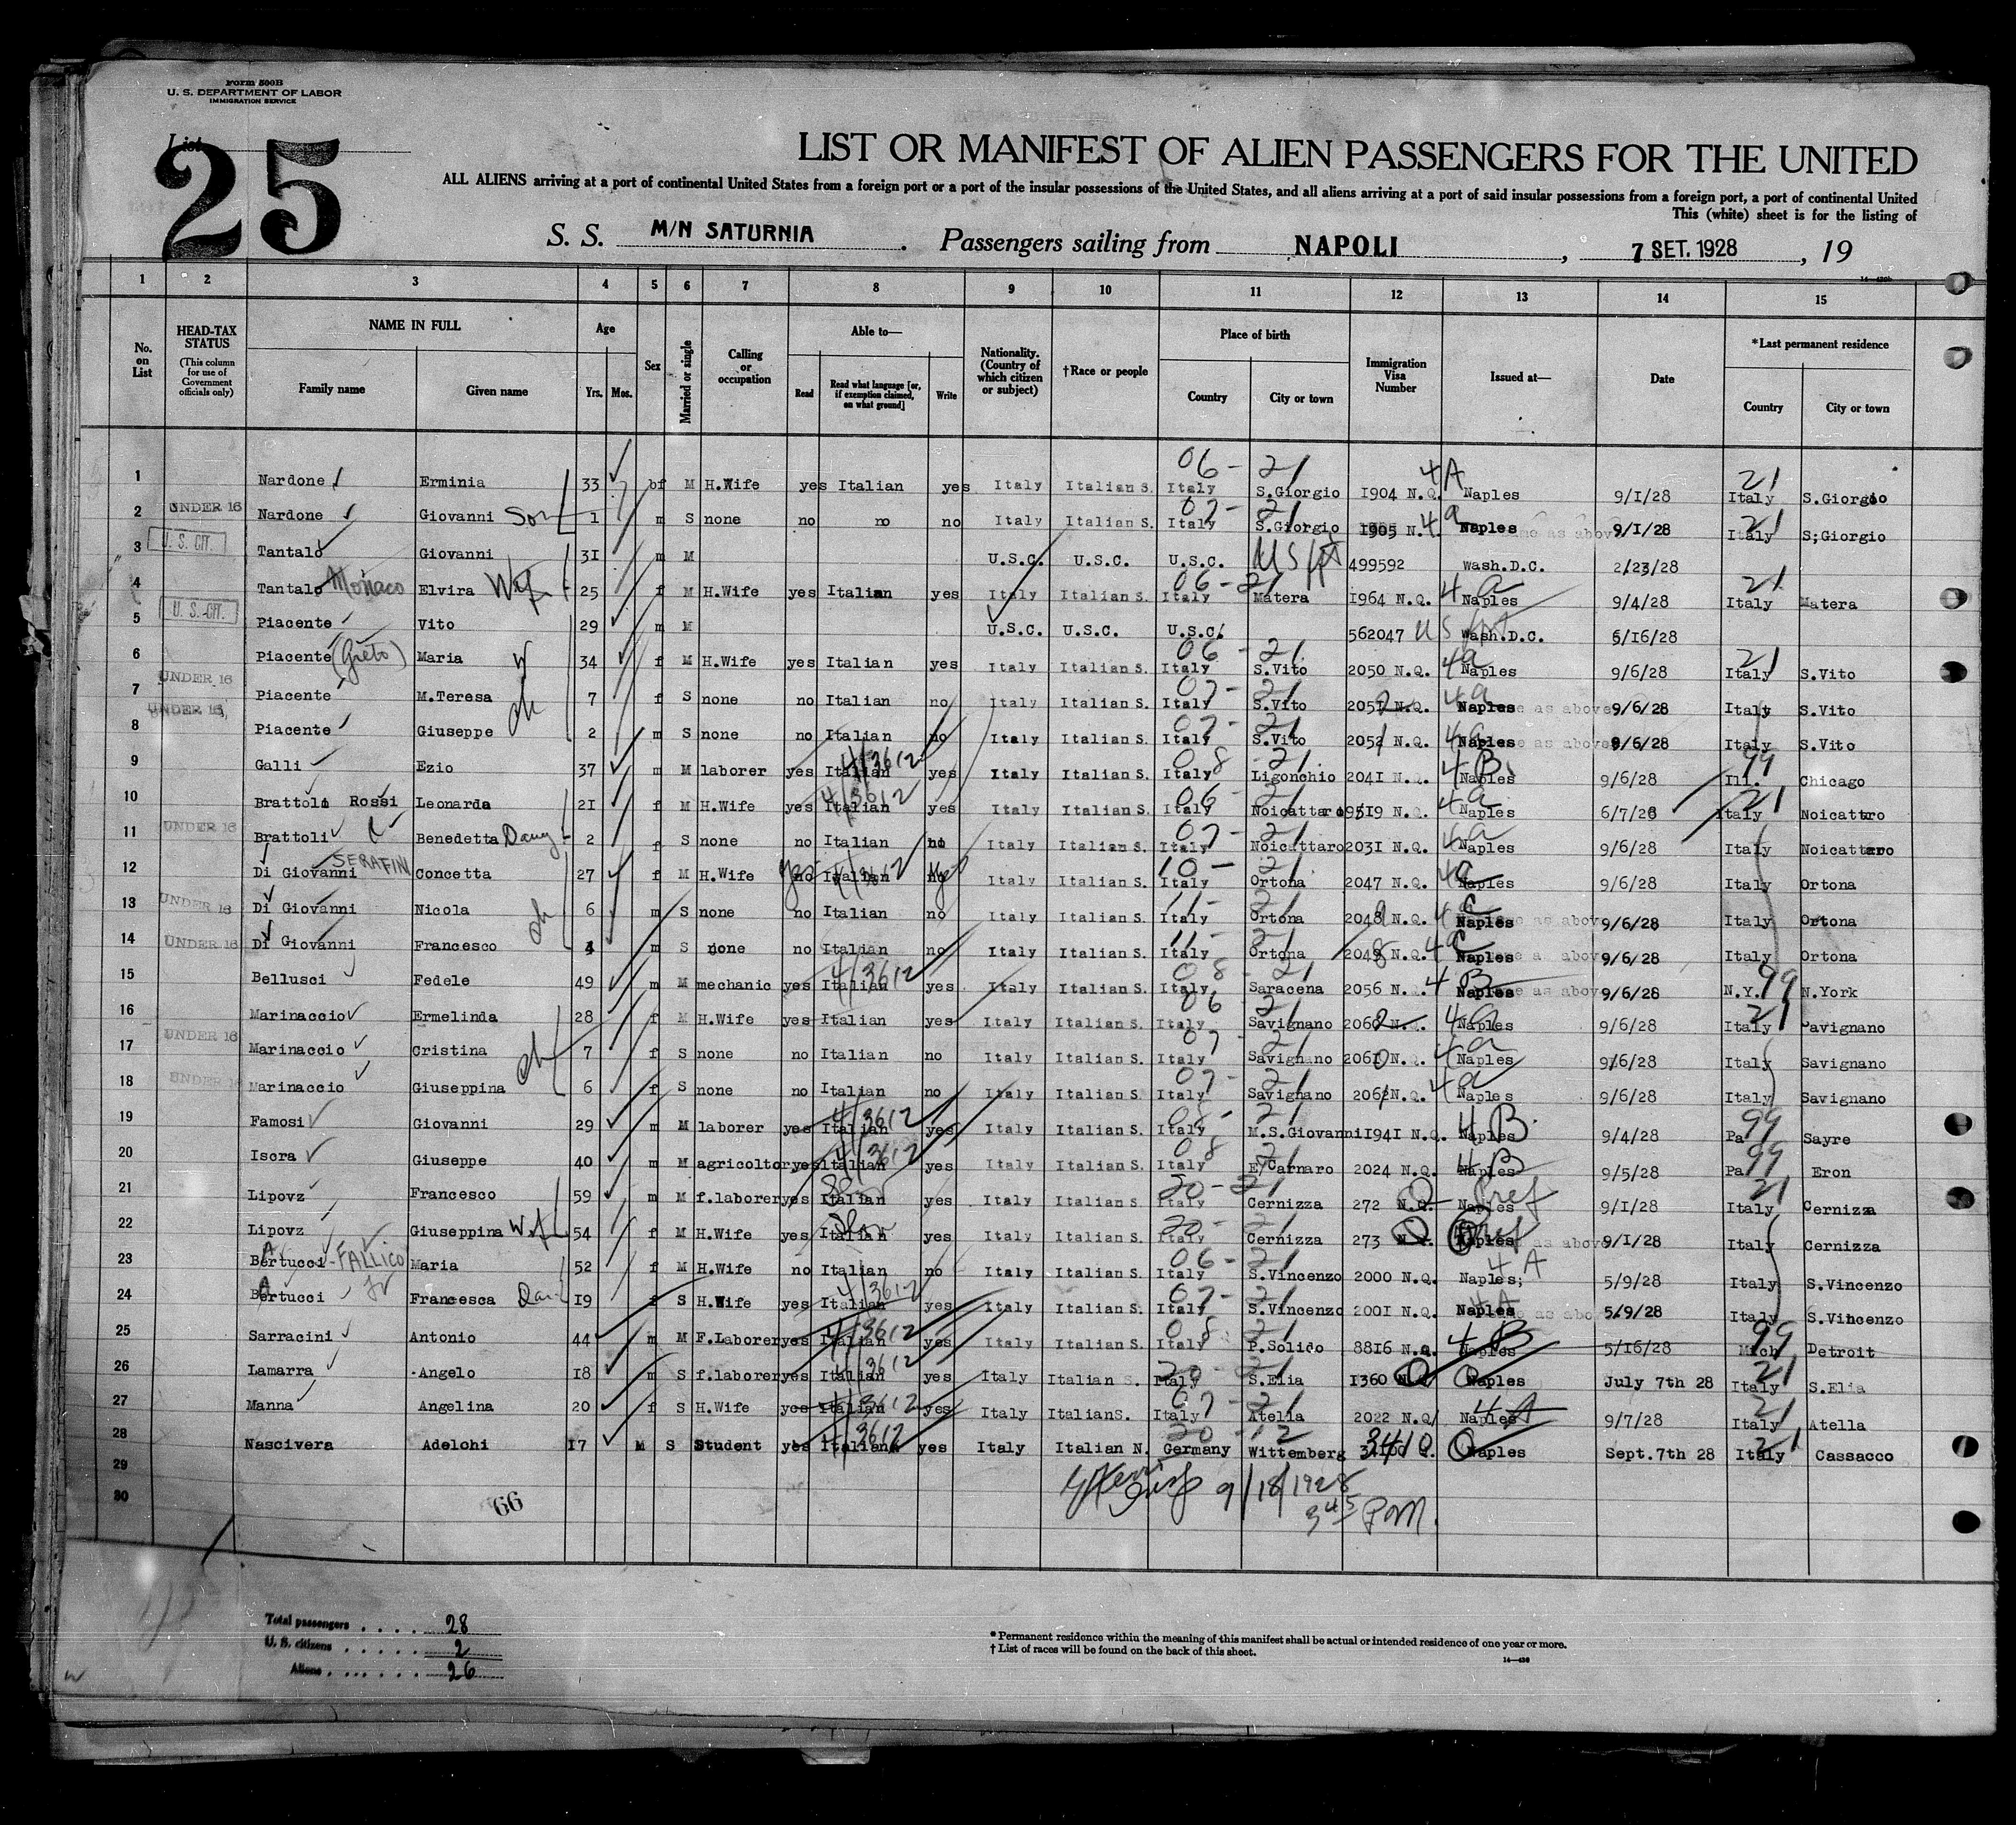 Form 500B
U. S. DEPARTMENT OF LABOR
IMMIGRATION SERVICE
List
25
LIST OR MANIFEST OF ALIEN PASSENGERS FOR THE UNITED
ALL ALIENS arriving at a port of continental United States from a foreign port or a port of the insular possessions of the United States, and all aliens arriving at a port of said insular possessions from a foreign port, a port of continental United
This (white) sheet is for the listing of
S. S. M/N SATURNIA . Passengers sailing from NAPOLI , 7 SET. 1928 , 19
1 2 3 4 5 6 7 8 9 10 11 12 13 14 15
No. on List
HEAD-TAX STATUS (This column for use of Government officials only)
NAME IN FULL Family name Given name
Age Yrs. Mos.
Sex
Married or single
Calling or occupation
Able to— Read Read what language [or, if exemption claimed, on what ground] Write
Nationality. (Country of which citizen or subject)
†Race or people
Place of birth Country City or town
Immigration Visa Number
Issued at—
Date
*Last permanent residence Country City or town
1 Nardone Erminia 33 f M H.Wife yes Italian yes Italy Italian S. Italy 06-21 S.Giorgio 1904 N.Q. 4A Naples 9/1/28 Italy 21 S.Giorgio
2 UNDER 16 Nardone Giovanni Son 1 m S none no no no Italy Italian S. Italy 07-21 S.Giorgio 1905 N. 4a Naples 9/1/28 Italy 21 S;Giorgio
3 U. S. CIT. Tantalo Giovanni 31 m M U.S.C. U.S.C. U.S.C. 499592 Wash.D.C. 2/23/28
4 Tantalo Monaco Elvira Wife 25 f M H.Wife yes Italian yes Italy Italian S. Italy 06-21 Matera 1964 N.Q. 4a Naples 9/4/28 Italy 21 Matera
5 U. S. CIT. Piacente Vito 29 m M U.S.C. U.S.C. U.S.C. 562047 Wash.D.C. 5/16/28
6 Piacente (Greto) Maria W 34 f M H.Wife yes Italian yes Italy Italian S. Italy 06-21 S.Vito 2050 N.Q. 4a Naples 9/6/28 Italy 21 S.Vito
7 UNDER 16 Piacente M.Teresa ch 7 f S none no Italian no Italy Italian S. Italy 07-21 S.Vito 2051 N.Q. 4a Naples 9/6/28 Italy S.Vito
8 UNDER 16 Piacente Giuseppe 2 m S none no Italian no Italy Italian S. Italy 07-21 S.Vito 2052 N.Q. 4a Naples 9/6/28 Italy S.Vito
9 Galli Ezio 37 m M laborer yes Italian 4/3612 yes Italy Italian S. Italy 08-21 Ligonchio 2041 N.Q. 4B Naples 9/6/28 Ill. 99 Chicago
10 Brattoli Rossi Leonarda 21 f M H.Wife yes Italian 4/3612 yes Italy Italian S. Italy 06-21 Noicattaro 19519 N.Q. 4a Naples 6/7/28 Italy 21 Noicattaro
11 UNDER 16 Brattoli Benedetta Daug 2 f S none no Italian no Italy Italian S. Italy 07-21 Noicattaro 2031 N.Q. 4a Naples 9/6/28 Italy Noicattaro
12 Di Giovanni SERAFIN Concetta 27 f M H.Wife no yes Italian no Italy Italian S. Italy 10-21 Ortona 2047 N.Q. 4a Naples 9/6/28 Italy Ortona
13 UNDER 16 Di Giovanni Nicola ch 6 m S none no Italian no Italy Italian S. Italy 11-21 Ortona 2048 N.Q. 4a Naples 9/6/28 Italy Ortona
14 UNDER 16 Di Giovanni Francesco 4 m S none no Italian no Italy Italian S. Italy 11-21 Ortona 2049 N.Q. 4a Naples 9/6/28 Italy Ortona
15 Bellusci Fedele 49 m M mechanic yes Italian 4/3612 yes Italy Italian S. Italy 08-21 Saracena 2056 N.Q. 4B Naples 9/6/28 N.Y. 99 N.York
16 Marinaccio Ermelinda 28 f M H.Wife yes Italian yes Italy Italian S. Italy 06-21 Savignano 2060 N.Q. 4a Naples 9/6/28 Italy 21 Savignano
17 UNDER 16 Marinaccio Cristina ch 7 f S none no Italian no Italy Italian S. Italy 07-21 Savignano 2061 N.Q. 4a Naples 9/6/28 Italy Savignano
18 UNDER 16 Marinaccio Giuseppina 6 f S none no Italian no Italy Italian S. Italy 07-21 Savignano 2062 N.Q. 4a Naples 9/6/28 Italy Savignano
19 Famosi Giovanni 29 m M laborer yes Italian 4/3612 yes Italy Italian S. Italy 08-21 M.S.Giovanni 1941 N.Q. 4B Naples 9/4/28 Pa 99 Sayre
20 Iscra Giuseppe 40 m M agricoltor yes Italian 4/3612 yes Italy Italian S. Italy 08 21 E/Carnaro 2024 N.Q. 4B Naples 9/5/28 Pa 99 Eron
21 Lipovz Francesco 59 m M f.laborer yes Italian yes Italy Italian S. Italy 20-21 Cernizza 272 N.Q. Pref Naples 9/1/28 Italy 21 Cernizza
22 Lipovz Giuseppina Wife 54 f M H.Wife yes Italian yes Italy Italian S. Italy 20-21 Cernizza 273 N.Q. Pref Naples 9/1/28 Italy Cernizza
23 Bertucci-FALLICO Maria 52 f M H.Wife no Italian no Italy Italian S. Italy 06-21 S.Vincenzo 2000 N.Q. 4A Naples; 5/9/28 Italy S.Vincenzo
24 Bertucci Francesca Dau 19 f S H.Wife yes Italian 4/3612 yes Italy Italian S. Italy 07-21 S.Vincenzo 2001 N.Q. 4A Naples 5/9/28 Italy S.Vincenzo
25 Sarracini Antonio 44 m M F.Laborer yes Italian 4/3612 yes Italy Italian S. Italy 08 21 P.Solido 8816 N.Q. 4B Naples 5/16/28 Mich 99 Detroit
26 Lamarra Angelo 18 m S f.laborer yes Italian 4/3612 yes Italy Italian S. Italy 20-21 S.Elia 1360 Q Naples July 7th 28 Italy 21 S.Elia
27 Manna Angelina 20 f S H.Wife yes Italian 4/3612 yes Italy Italian S. Italy 07-21 Atella 2022 N.Q. 4A Naples 9/7/28 Italy 21 Atella
28 Nascivera Adelohi 17 M S Student yes Italian 4/3612 yes Italy Italian N. Germany 20-12 Wittemberg 3410 Q. Naples Sept.7th 28 Italy 21 Cassacco
29
30
66
9/18/1928
3 45 P.M.
Total passengers . . . . 28
U. S. citizens . . . . . 2
Aliens . . . . . 26
* Permanent residence within the meaning of this manifest shall be actual or intended residence of one year or more.
† List of races will be found on the back of this sheet.